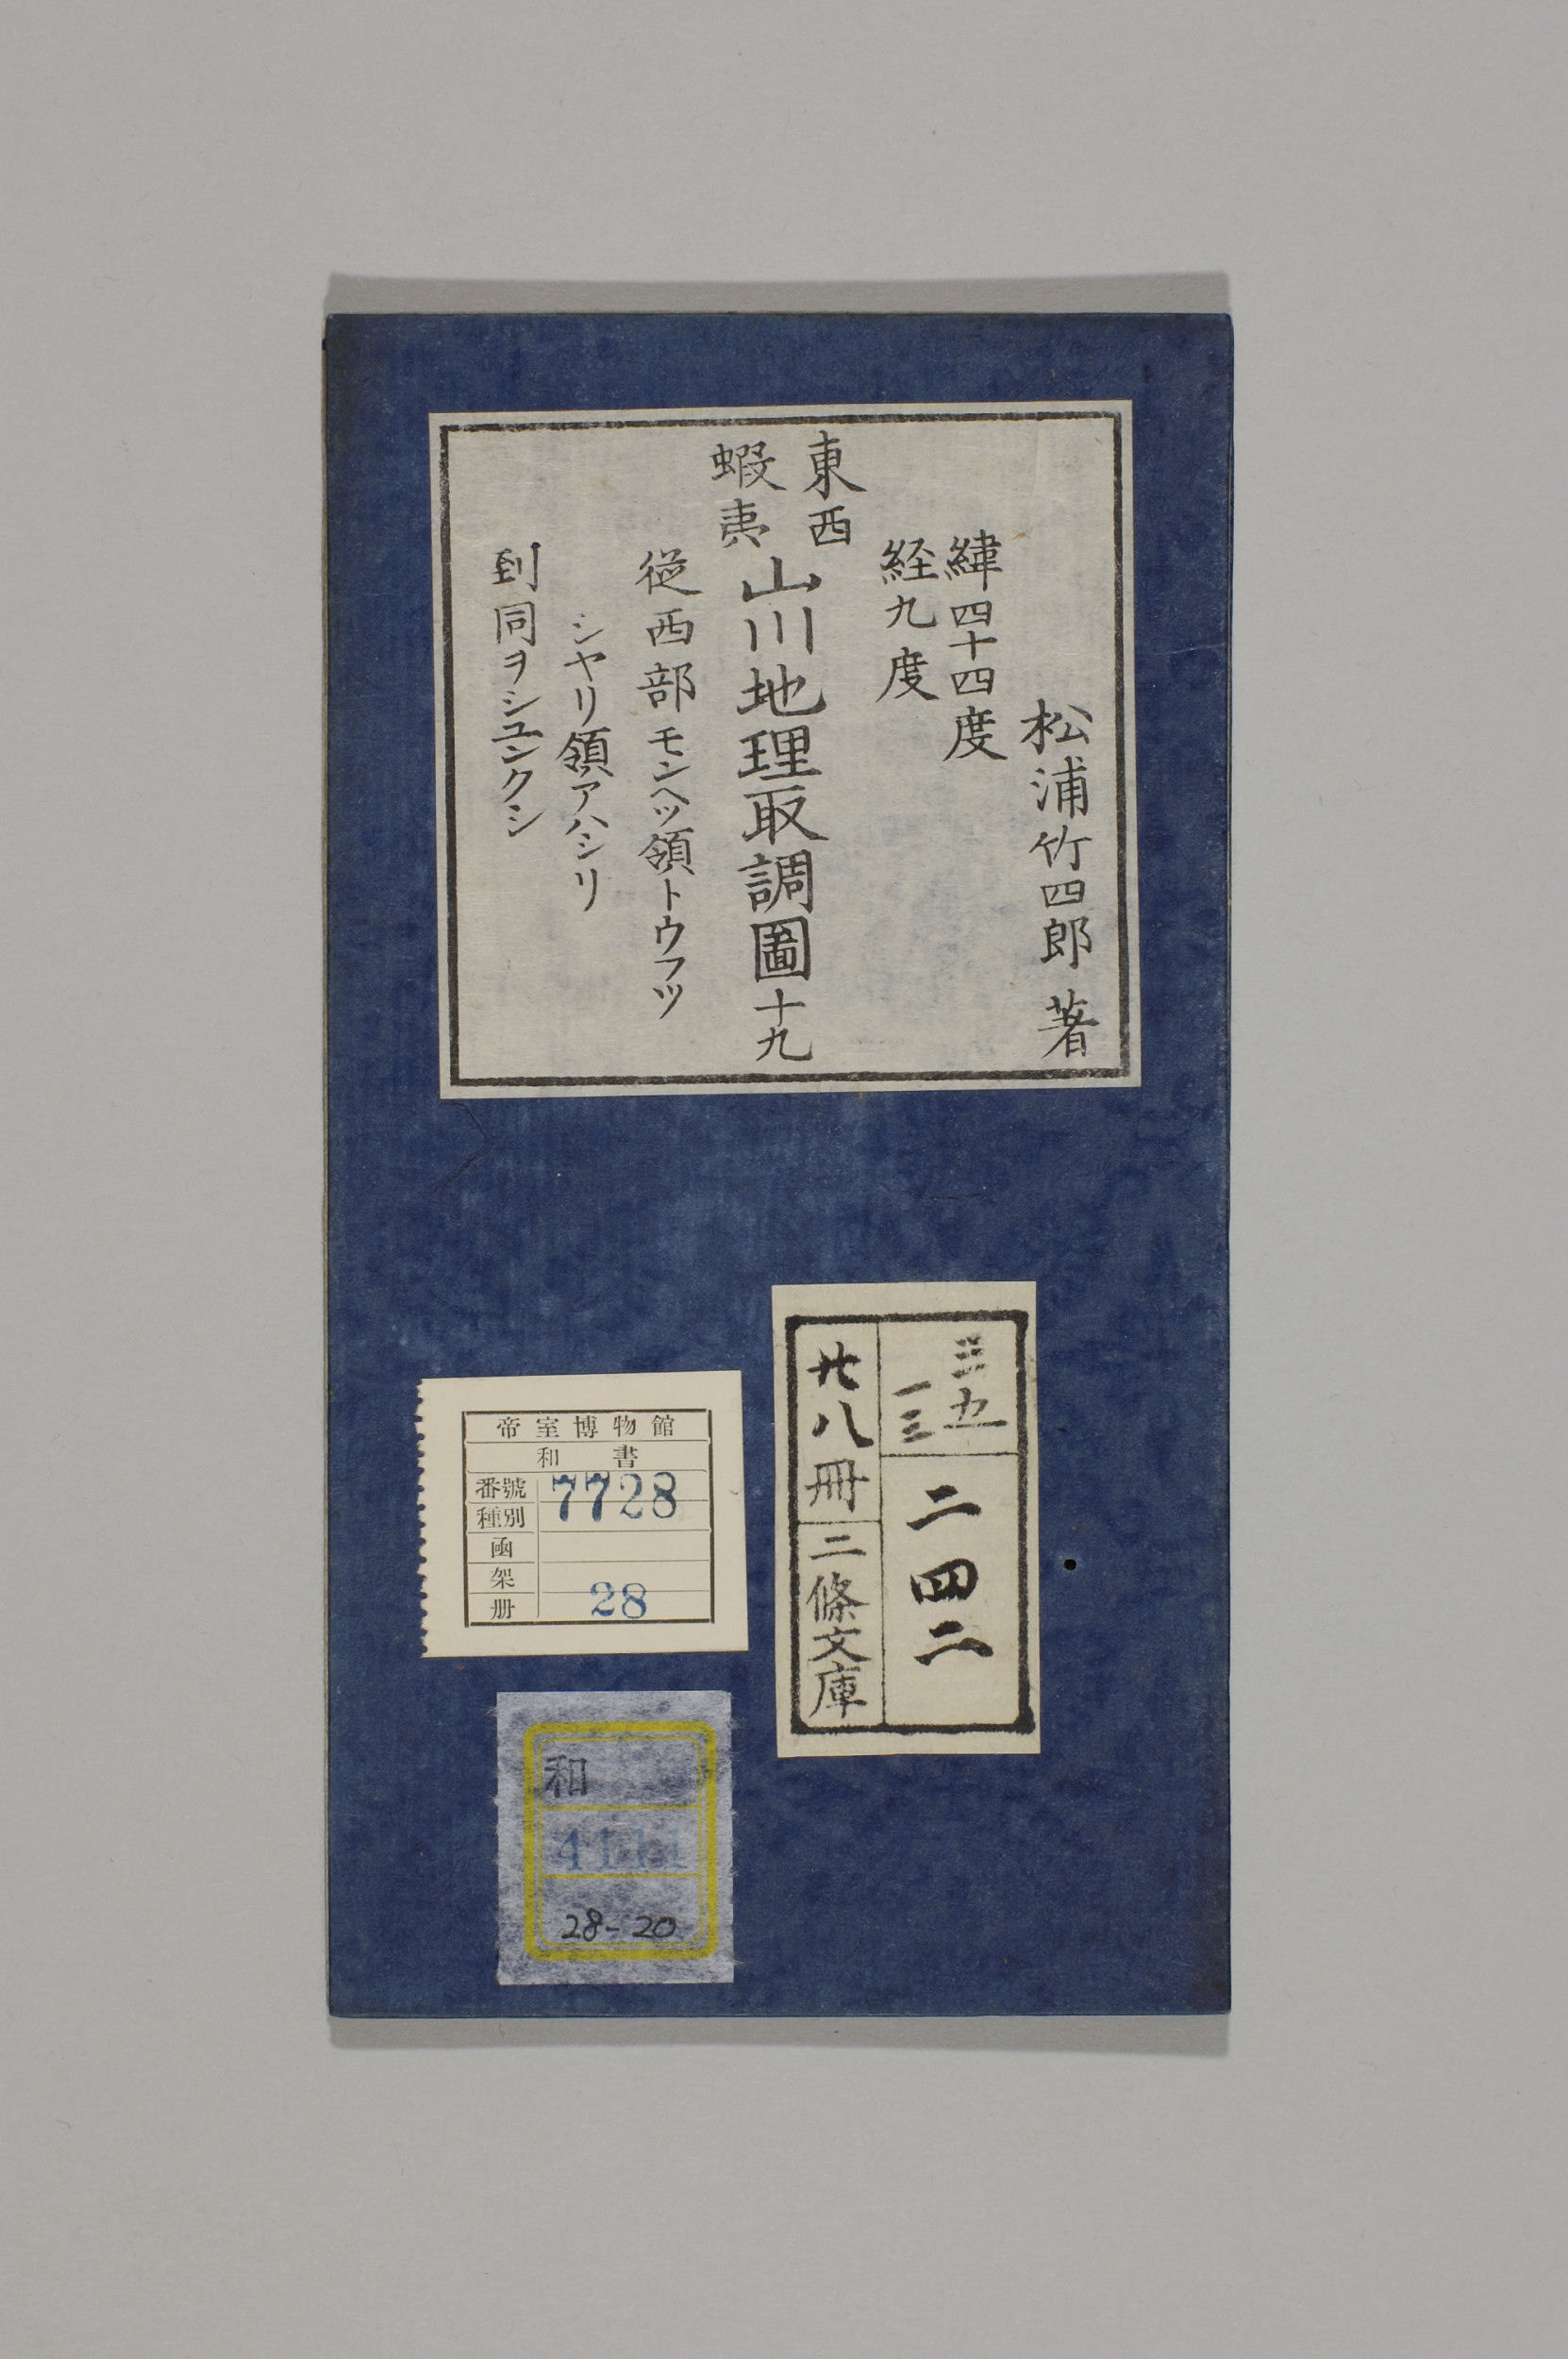 松浦竹四郎 著
緯四十四度
経九度
東西
蝦夷
山川地理取調圖十九
從西部モンヘツ領トウフツ
シヤリ領アハシリ
到同ヲシユンクシ
三五
一三
二四二
廿八冊
二條文庫
帝室博物館
和書
番號 7728
種別
函
架
册 28
和
4111
28-20